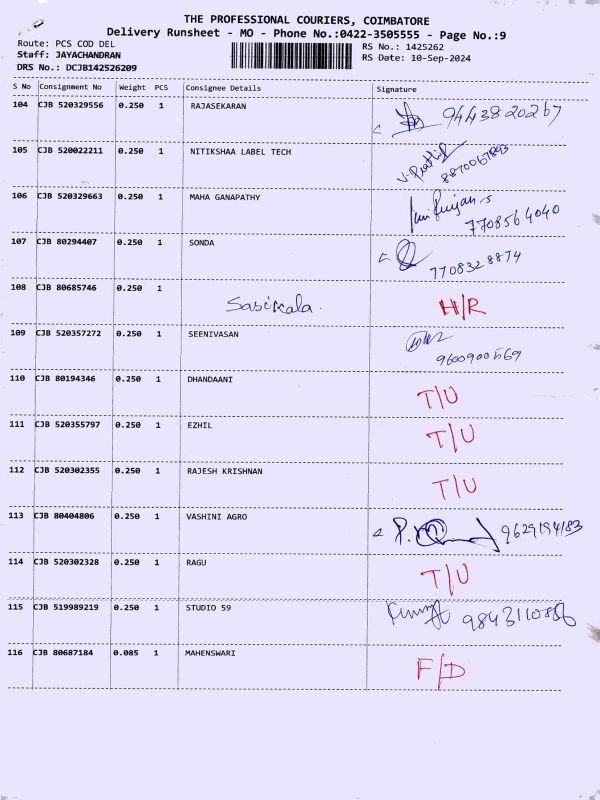 THE PROFESSIONAL COURIERS, COIMBATORE
Delivery Runsheet - MO - Phone No.:0422-3505555 - Page No.:9
Route: PCS COD DEL RS No.: 1425262
Staff: JAYACHANDRAN RS Date: 10-Sep-2024
DRS No.: DCJB142526209
S No Consignment No Weight PCS Consignee Details Signature
104 CJB 520329556 0.250 1 RAJASEKARAN 9443820267
105 CJB 520022211 0.250 1 NITIKSHAA LABEL TECH 8870067893
106 CJB 520329663 0.250 1 MAHA GANAPATHY 7708564040
107 CJB 80294407 0.250 1 SONDA 7708328874
108 CJB 80685746 0.250 1 Sasikala. H/R
109 CJB 520357272 0.250 1 SEENIVASAN 9600900569
110 CJB 80194346 0.250 1 DHANDAANI T/U
111 CJB 520355797 0.250 1 EZHIL T/U
112 CJB 520302355 0.250 1 RAJESH KRISHNAN T/U
113 CJB 80404806 0.250 1 VASHINI AGRO 9629194183
114 CJB 520302328 0.250 1 RAGU T/U
115 CJB 519989219 0.250 1 STUDIO 59
116 CJB 80687184 0.085 1 MAHENSWARI F/D